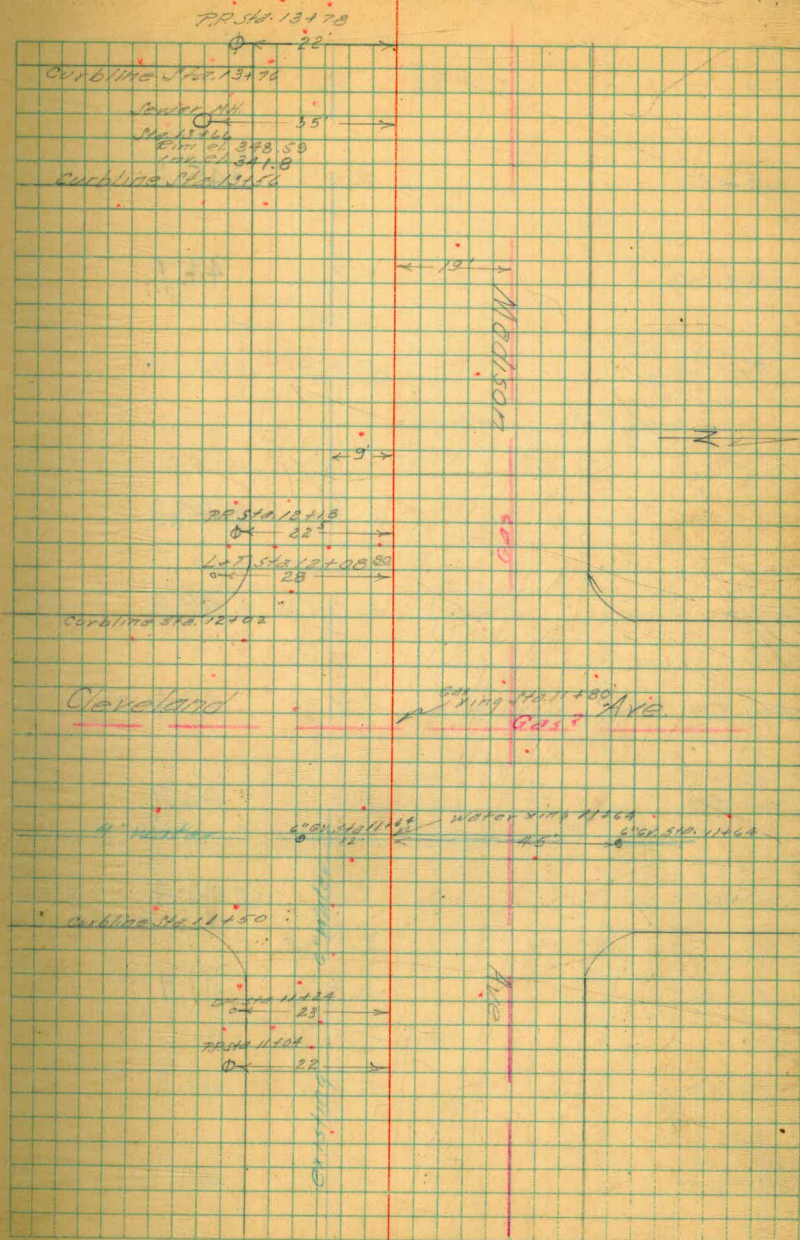 P.P. Sta. 13+78
22'
Curbline Sta. 13+76
Sewer M.H.
35'
Sta. 13+66
Rim el. 348.59
Inv. el. 341.8
Curbline Sta. 13+56
19'
Madison
N
9'
P.P. Sta. 12+18
22⁵
Gas
L+T Sta. 12+08
28
Curbline Sta. 12+02
Cleveland
Gas Xing Sta. 11+80
Gas?
Ave.
4" Water
6" GV. Sta. 11+64
12'
Water Xing 11+64
45'
6" GV. Sta. 11+64
Curbline Sta. 11+50
6" Water
Ave
Sta 11+24
23
P.P. Sta 11+04
22
Existing